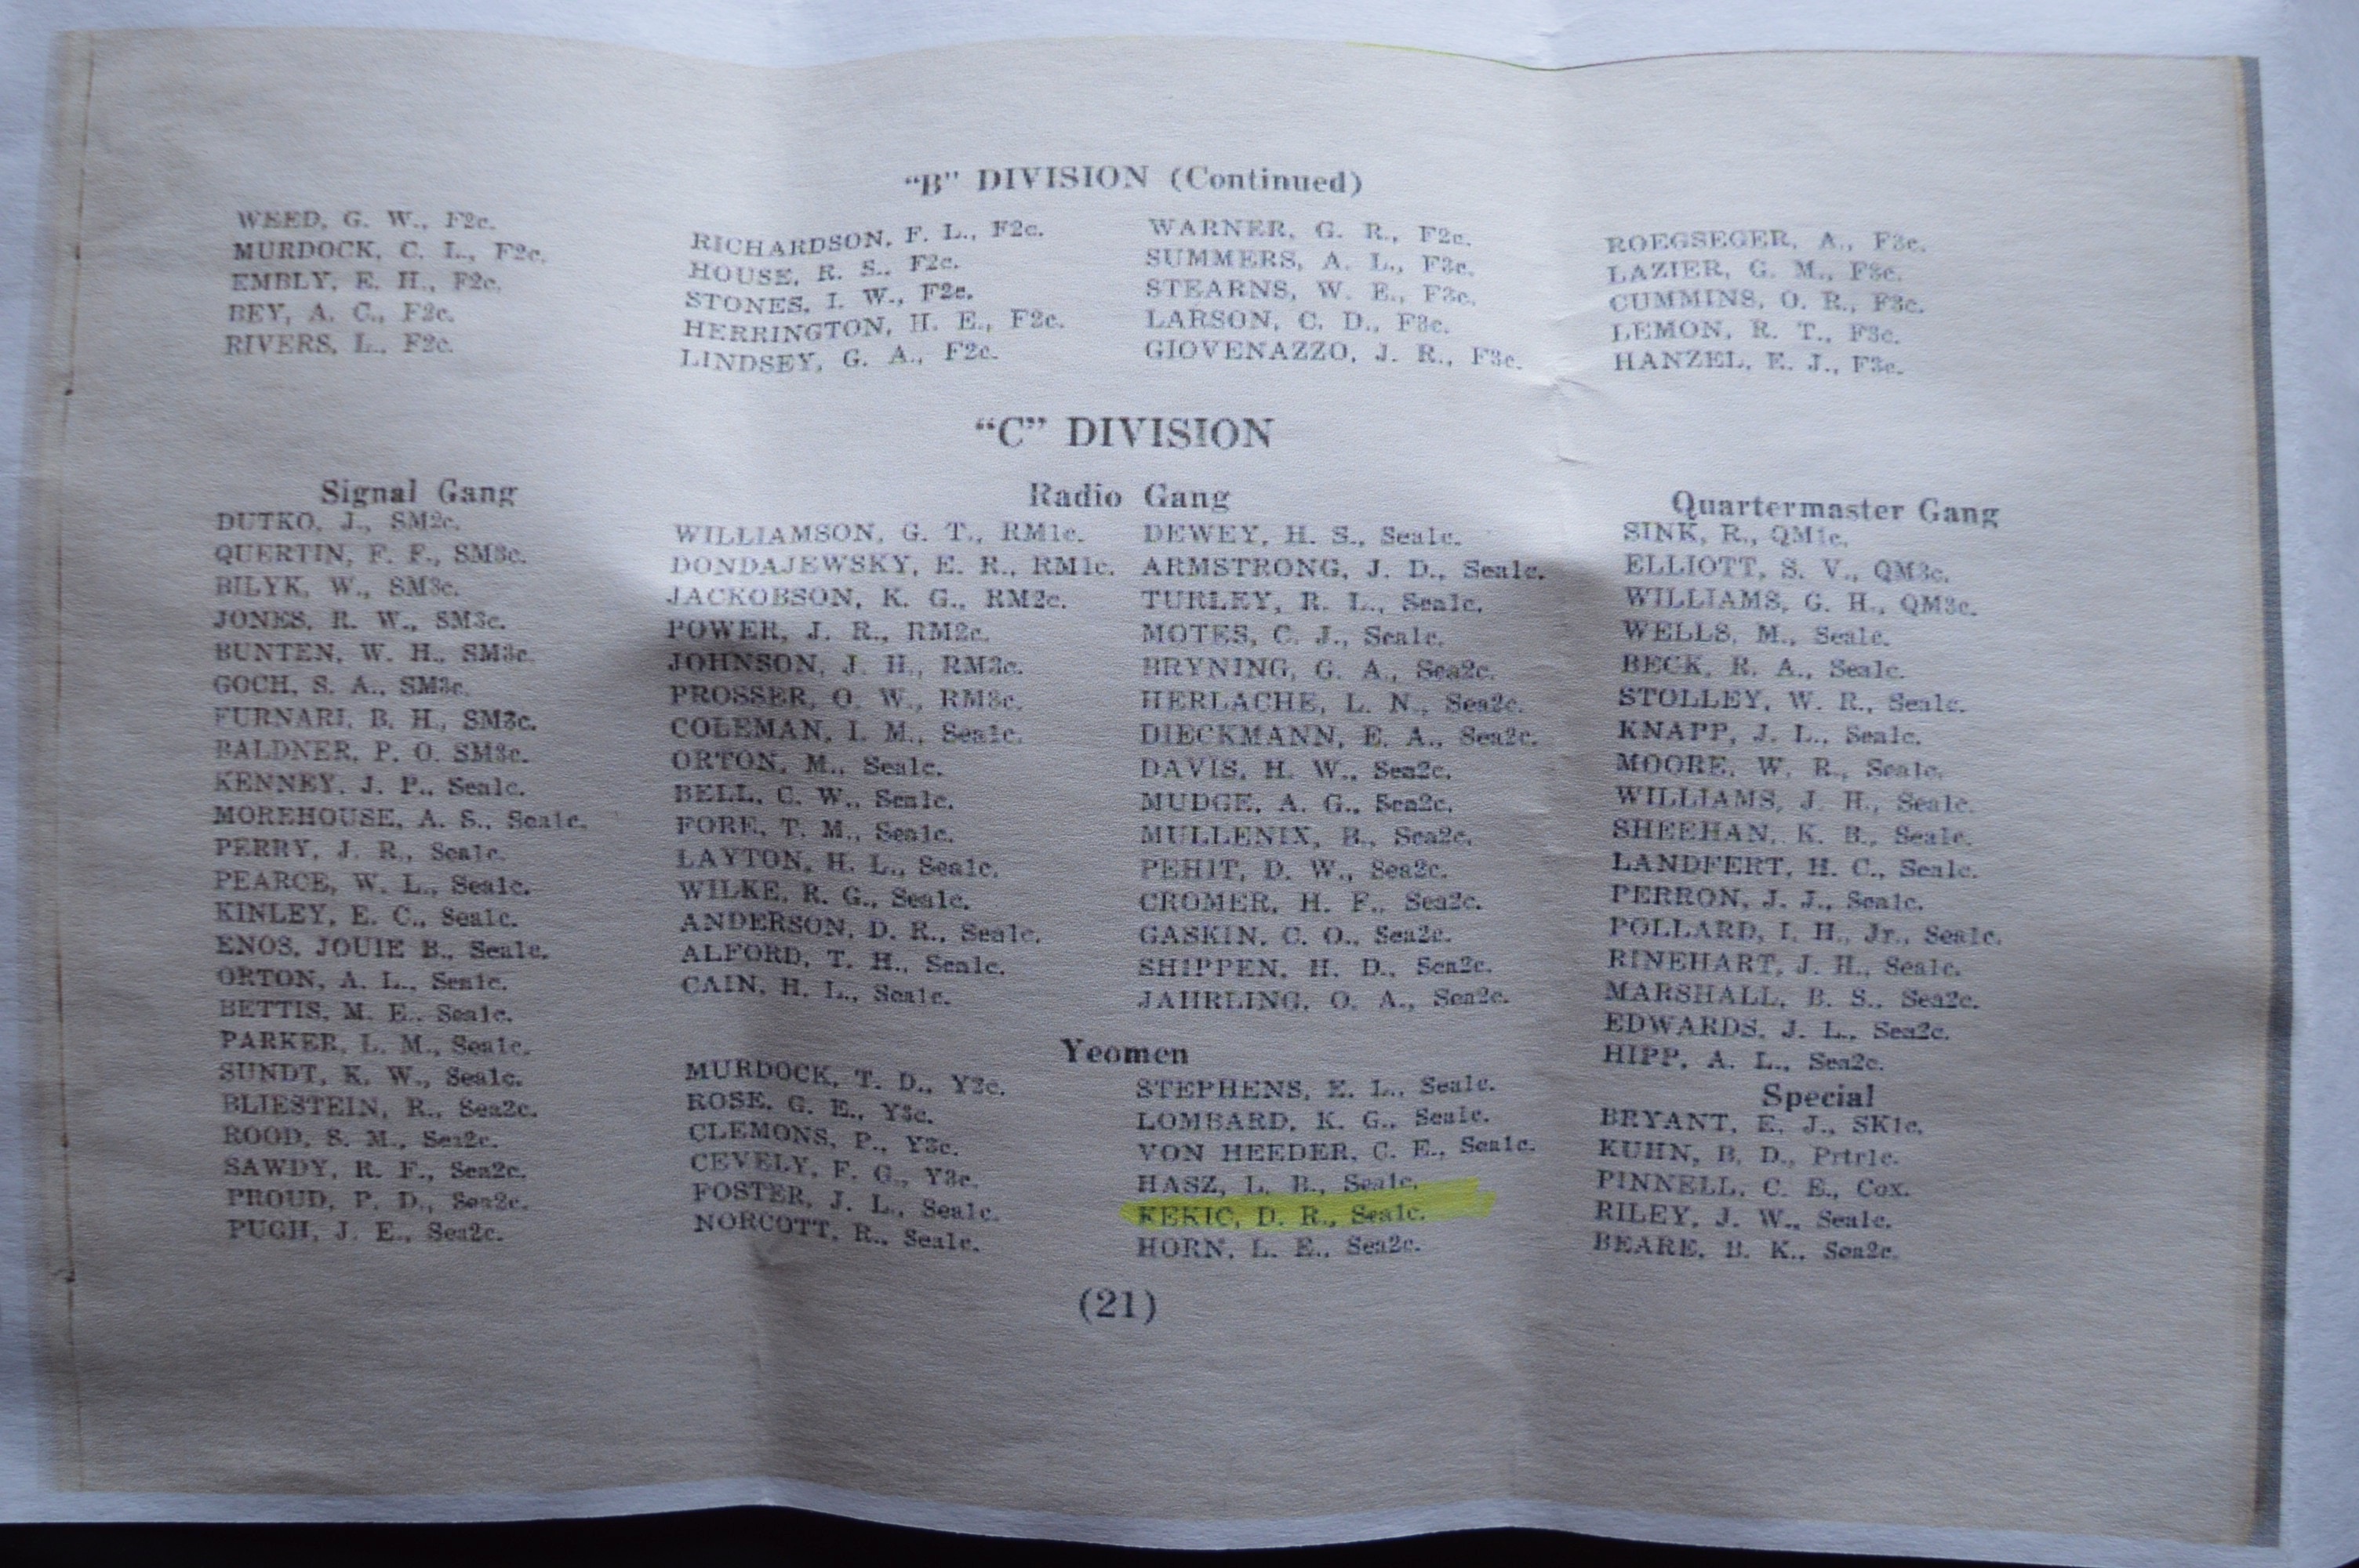 "B" DIVISION (Continued)
WEED, G. W., F2c.
MURDOCK, C. L., F2c.
EMBLY, E. H., F2c.
BEY, A. C., F2c.
RIVERS, L., F2c.
RICHARDSON, F. L., F2c.
HOUSE, R. S., F2c.
STONES, I. W., F2c.
HERRINGTON, H. E., F2c.
LINDSEY, G. A., F2c.
WARNER, G. R., F2c.
SUMMERS, A. L., F3c.
STEARNS, W. E., F3c.
LARSON, C. D., F3c.
GIOVENAZZO, J. R., F3c.
ROEGSEGER, A., F3c.
LAZIER, G. M., F3c.
CUMMINS, O. R., F3c.
LEMON, R. T., F3c.
HANZEL, E. J., F3c.
"C" DIVISION
Signal Gang
DUTKO, J., SM2c.
QUERTIN, F. F., SM3c.
BILYK, W., SM3c.
JONES, R. W., SM3c.
BUNTEN, W. H., SM3c.
GOCH, S. A., SM3c.
FURNARI, B. H., SM3c.
BALDNER, P. O. SM3c.
KENNEY, J. P., Sea1c.
MOREHOUSE, A. S., Sea1c.
PERRY, J. R., Sea1c.
PEARCE, W. L., Sea1c.
KINLEY, E. C., Sea1c.
ENOS, JOUIE B., Sea1c.
ORTON, A. L., Sea1c.
BETTIS, M. E., Sea1c.
PARKER, L. M., Sea1c.
SUNDT, K. W., Sea1c.
BLIESTEIN, R., Sea2c.
ROOD, S. M., Sea2c.
SAWDY, R. F., Sea2c.
PROUD, P. D., Sea2c.
PUGH, J. E., Sea2c.
Radio Gang
WILLIAMSON, G. T., RM1c.
DONDAJEWSKY, E. R., RM1c.
JACKOBSON, K. G., RM2c.
POWER, J. R., RM2c.
JOHNSON, J. H., RM3c.
PROSSER, O. W., RM3c.
COLEMAN, I. M., Sea1c.
ORTON, M., Sea1c.
BELL, C. W., Sea1c.
FORE, T. M., Sea1c.
LAYTON, H. L., Sea1c.
WILKE, R. G., Sea1c.
ANDERSON, D. R., Sea1c.
ALFORD, T. H., Sea1c.
CAIN, H. L., Sea1c.
DEWEY, H. S., Sea1c.
ARMSTRONG, J. D., Sea1c.
TURLEY, R. L., Sea1c.
MOTES, C. J., Sea1c.
BRYNING, G. A., Sea2c.
HERLACHE, L. N., Sea2c.
DIECKMANN, E. A., Sea2c.
DAVIS, H. W., Sea2c.
MUDGE, A. G., Sea2c.
MULLENIX, B., Sea2c.
PEHIT, D. W., Sea2c.
CROMER, H. F., Sea2c.
GASKIN, C. O., Sea2c.
SHIPPEN, H. D., Sea2c.
JAHRLING, O. A., Sea2c.
Yeomen
MURDOCK, T. D., Y2c.
ROSE, G. E., Y3c.
CLEMONS, P., Y3c.
CEVELY, F. G., Y3c.
FOSTER, J. L., Sea1c.
NORCOTT, R., Sea1c.
STEPHENS, E. L., Sea1c.
LOMBARD, K. G., Sea1c.
VON HEEDER, C. E., Sea1c.
HASZ, L. B., Sea1c.
KEKIC, D. R., Sea1c.
HORN, L. E., Sea2c.
Quartermaster Gang
SINK, R., QM1c.
ELLIOTT, S. V., QM3c.
WILLIAMS, G. H., QM3c.
WELLS, M., Sea1c.
BECK, R. A., Sea1c.
STOLLEY, W. R., Sea1c.
KNAPP, J. L., Sea1c.
MOORE, W. R., Sea1c.
WILLIAMS, J. H., Sea1c.
SHEEHAN, K. B., Sea1c.
LANDFERT, H. C., Sea1c.
PERRON, J. J., Sea1c.
POLLARD, I. H., Jr., Sea1c.
RINEHART, J. H., Sea1c.
MARSHALL, B. S., Sea2c.
EDWARDS, J. L., Sea2c.
HIPP, A. L., Sea2c.
Special
BRYANT, E. J., SK1c.
KUHN, B. D., Prtr1c.
PINNELL, C. E., Cox.
RILEY, J. W., Sea1c.
BEARE, B. K., Sea2c.
(21)